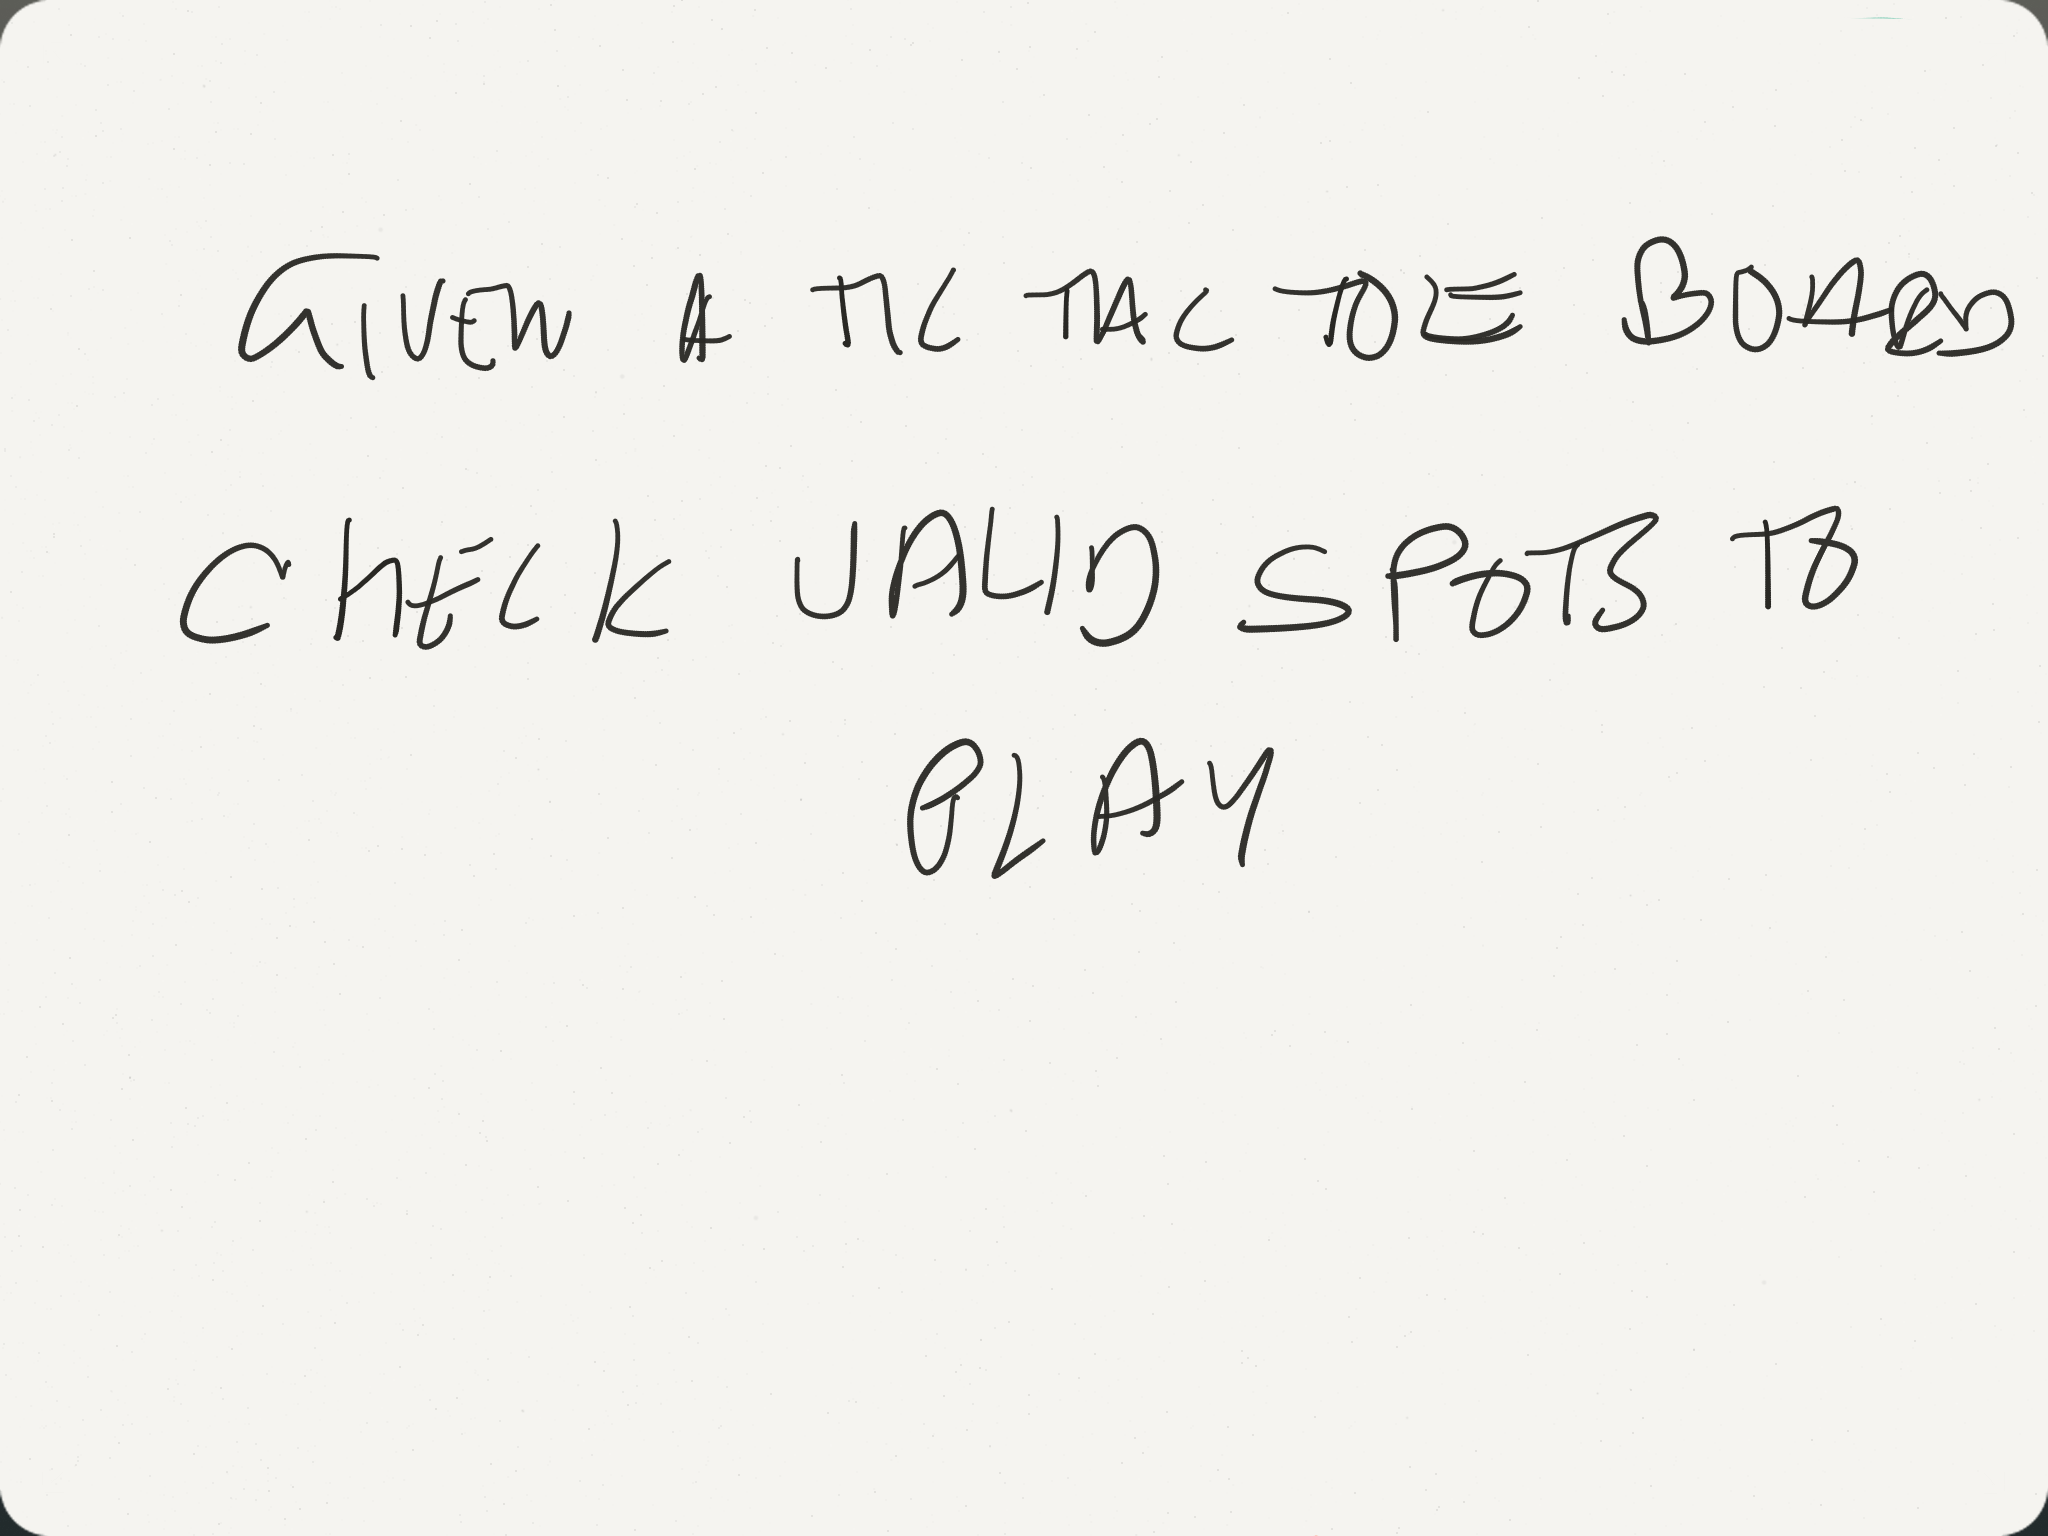 GIVEN A TIC TAC TOE BOARD
CHECK VALID SPOTS TO
PLAY